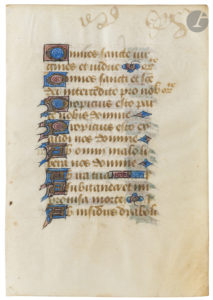 Omnes sancte vir
gines et vidue or
Omnes sancti et sce
dei intercedite pro nob or
Propicius esto par
ce nobis domine
Propicius esto
nobis domine
Ab omni malo li
bera nos domine
Ab ira tua
A subitanea et im
provisa morte
Ab insidiis diaboli